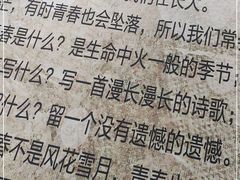 在长大。
忙，有时青春也会坠落，所以我们常
春是什么？是生命中火一般的季节；
写什么？写一首漫长漫长的诗歌；
什么？留一个没有遗憾的遗憾。
春不是风花雪月，青春